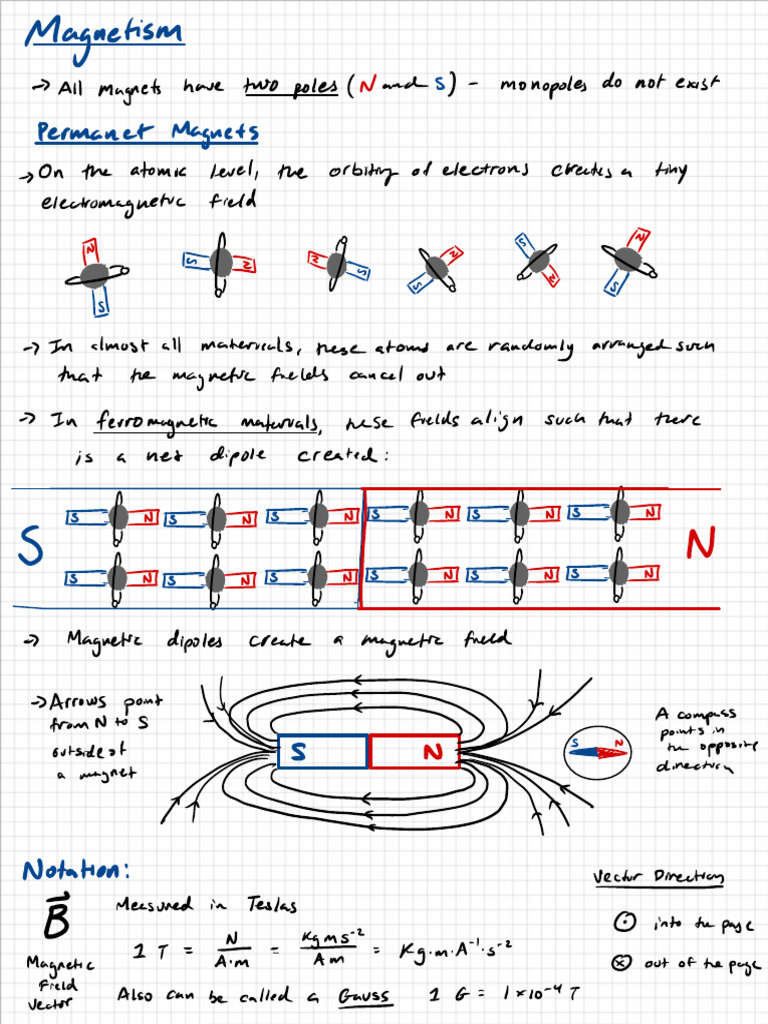 Magnetism
→ All magnets have two poles (N and S) - monopoles do not exist
Permanet Magnets
→ On the atomic level, the orbiting of electrons creates a tiny
electromagnetic field
N
S
S N
N S
S N
S N
N S
→ In almost all materials, these atoms are randomly arranged such
that the magnetic fields cancel out
→ In ferromagnetic materials, these fields align such that there
is a net dipole created:
S N S N S N S N S N S N
S N
S N S N S N S N S N S N
→ Magnetic dipoles create a magnetic field
→ Arrows point
from N to S
outside of
a magnet
S N
S N
A compass
points in
the opposite
direction
Notation:
B⃗
Magnetic
Field
Vector
Measured in Teslas
1 T = N/A·m = Kg m s⁻²/A m = Kg·m·A⁻¹·s⁻²
Also can be called a Gauss 1 G = 1×10⁻⁴ T
Vector Direction
⊙ into the page
⊗ out of the page